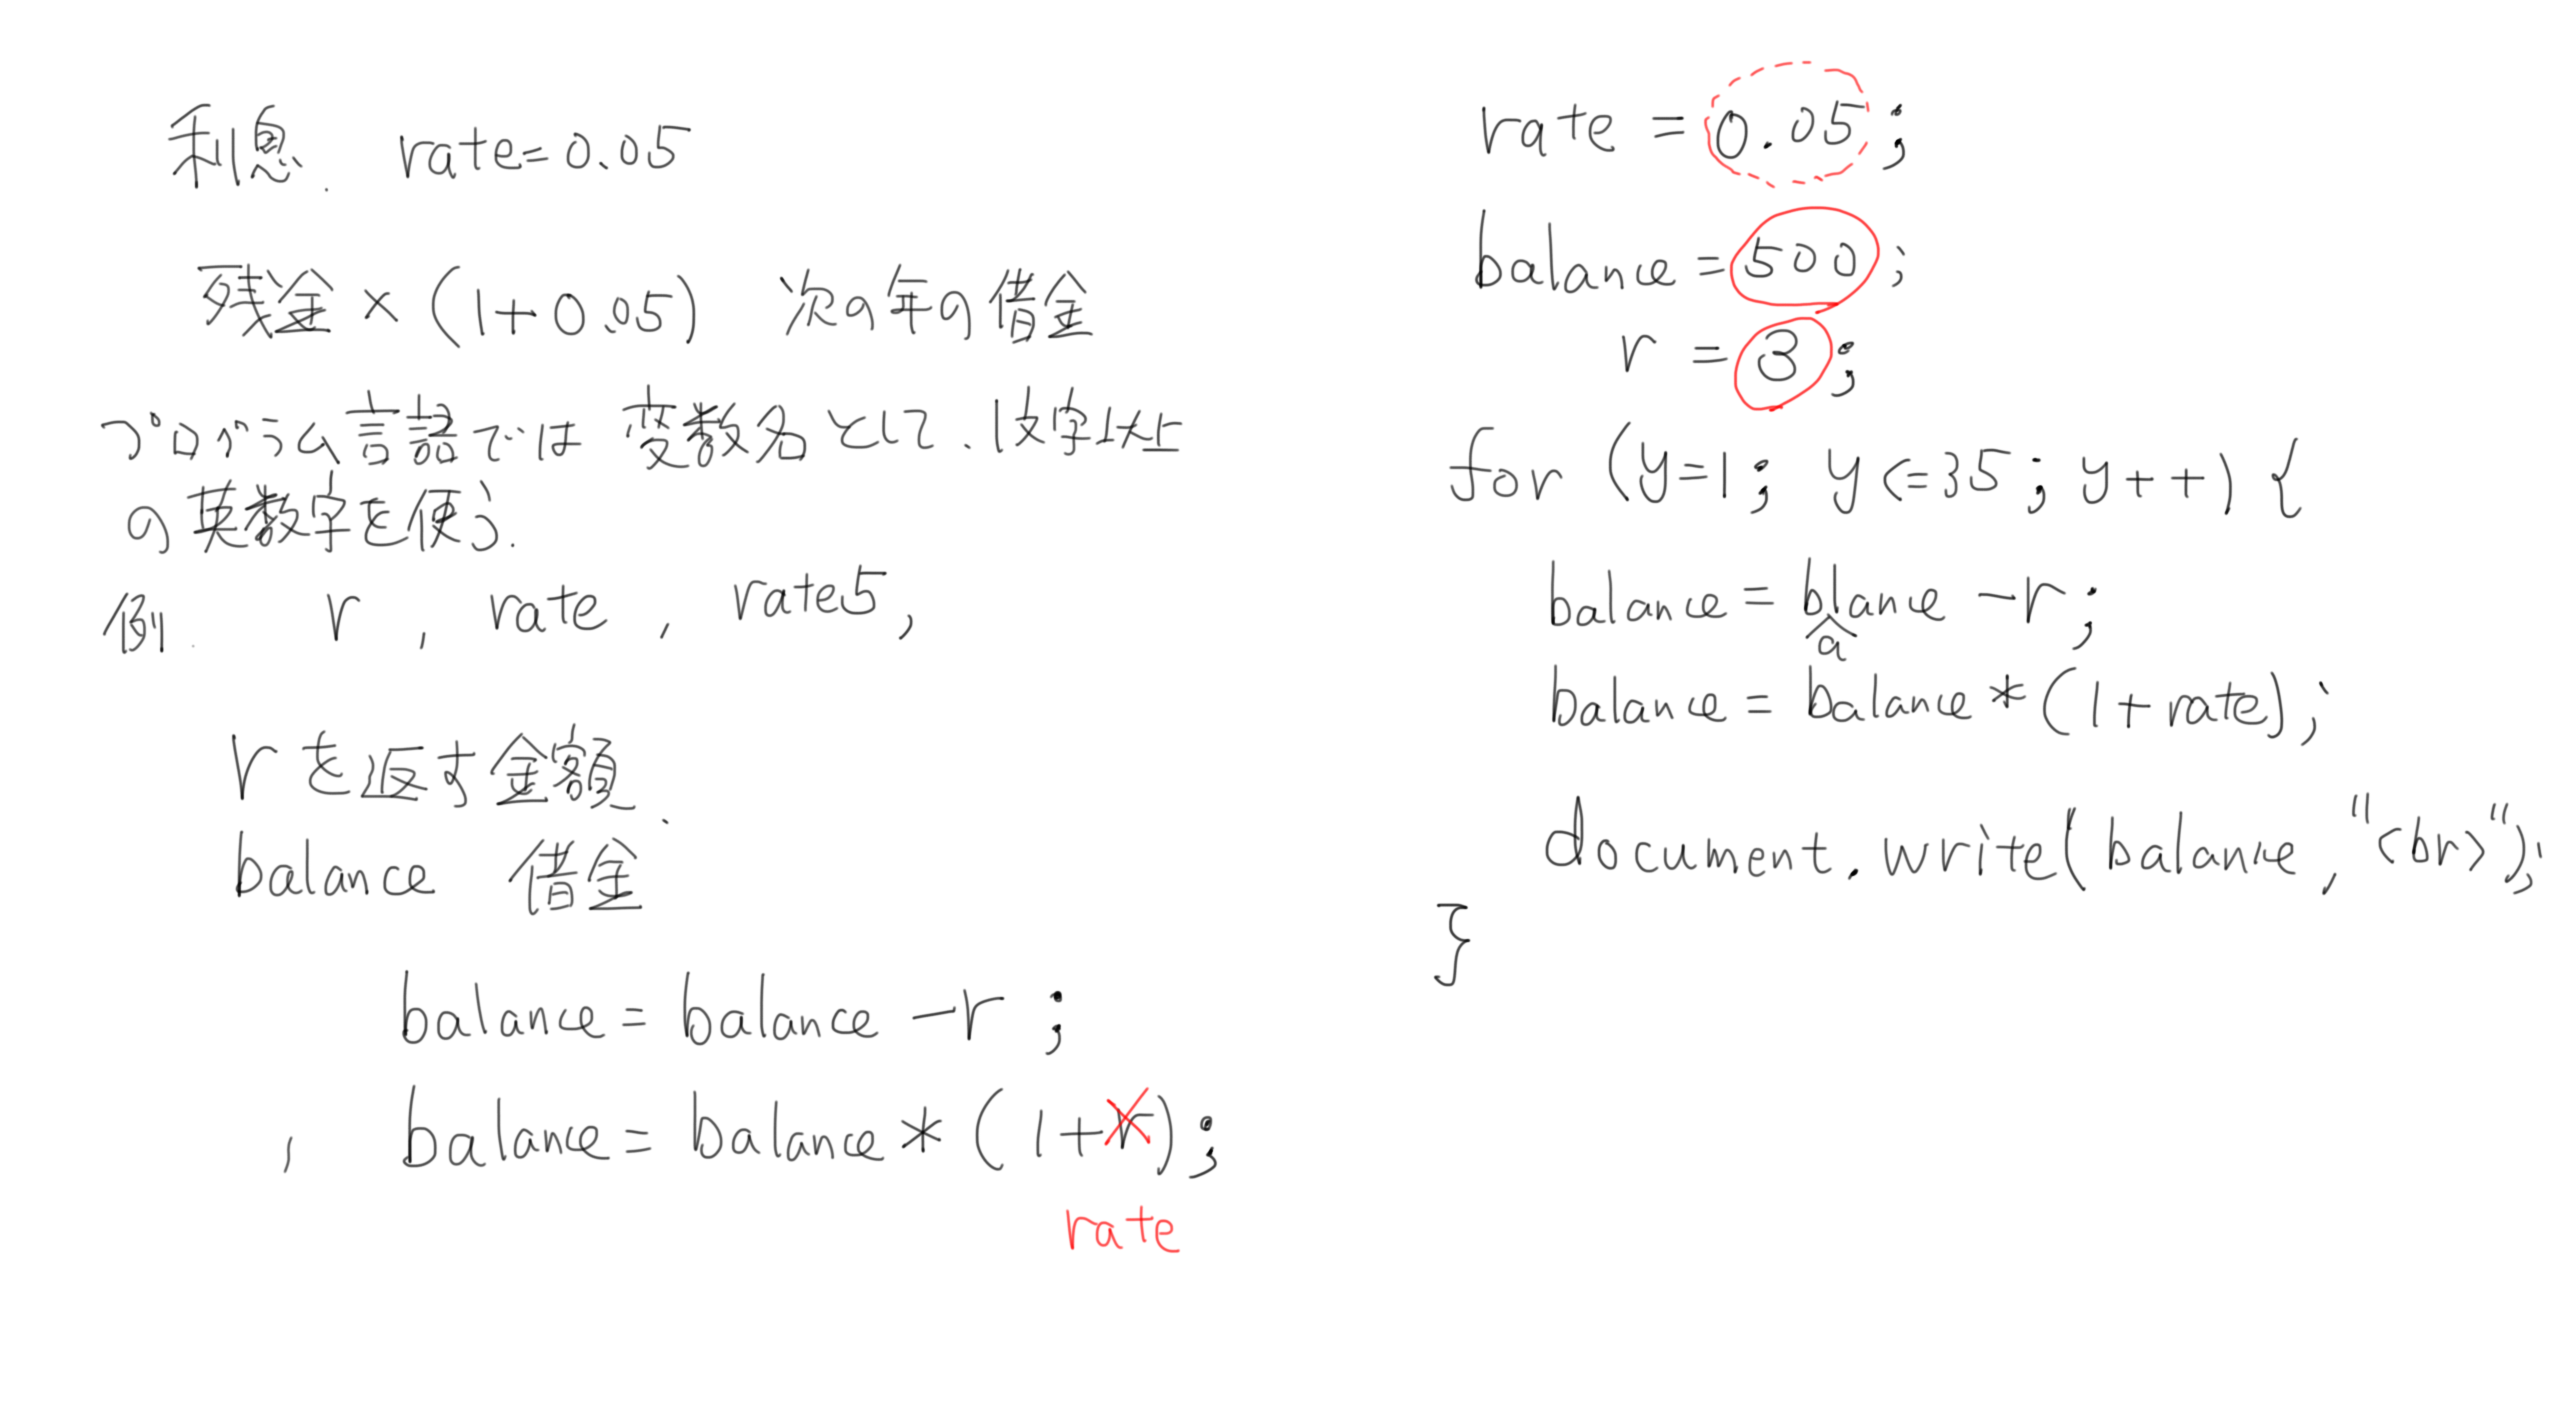 利息. rate=0.05
残金×(1+0.05) 次の年の借金
プログラム言語では変数名として、1文字以上
の英数字を使う.
例. r , rate , rate5,
rを返す金額.
balance 借金
balance = balance -r ;
, balance = balance * (1+r);
rate
rate = 0.05 ;
balance = 500 ;
r = 3 ;
for (y=1 ; y <=35 ; y++) {
balance = blance -r ;
a
balance = balance * (1+rate);
document.write(balance, "<br>");
}